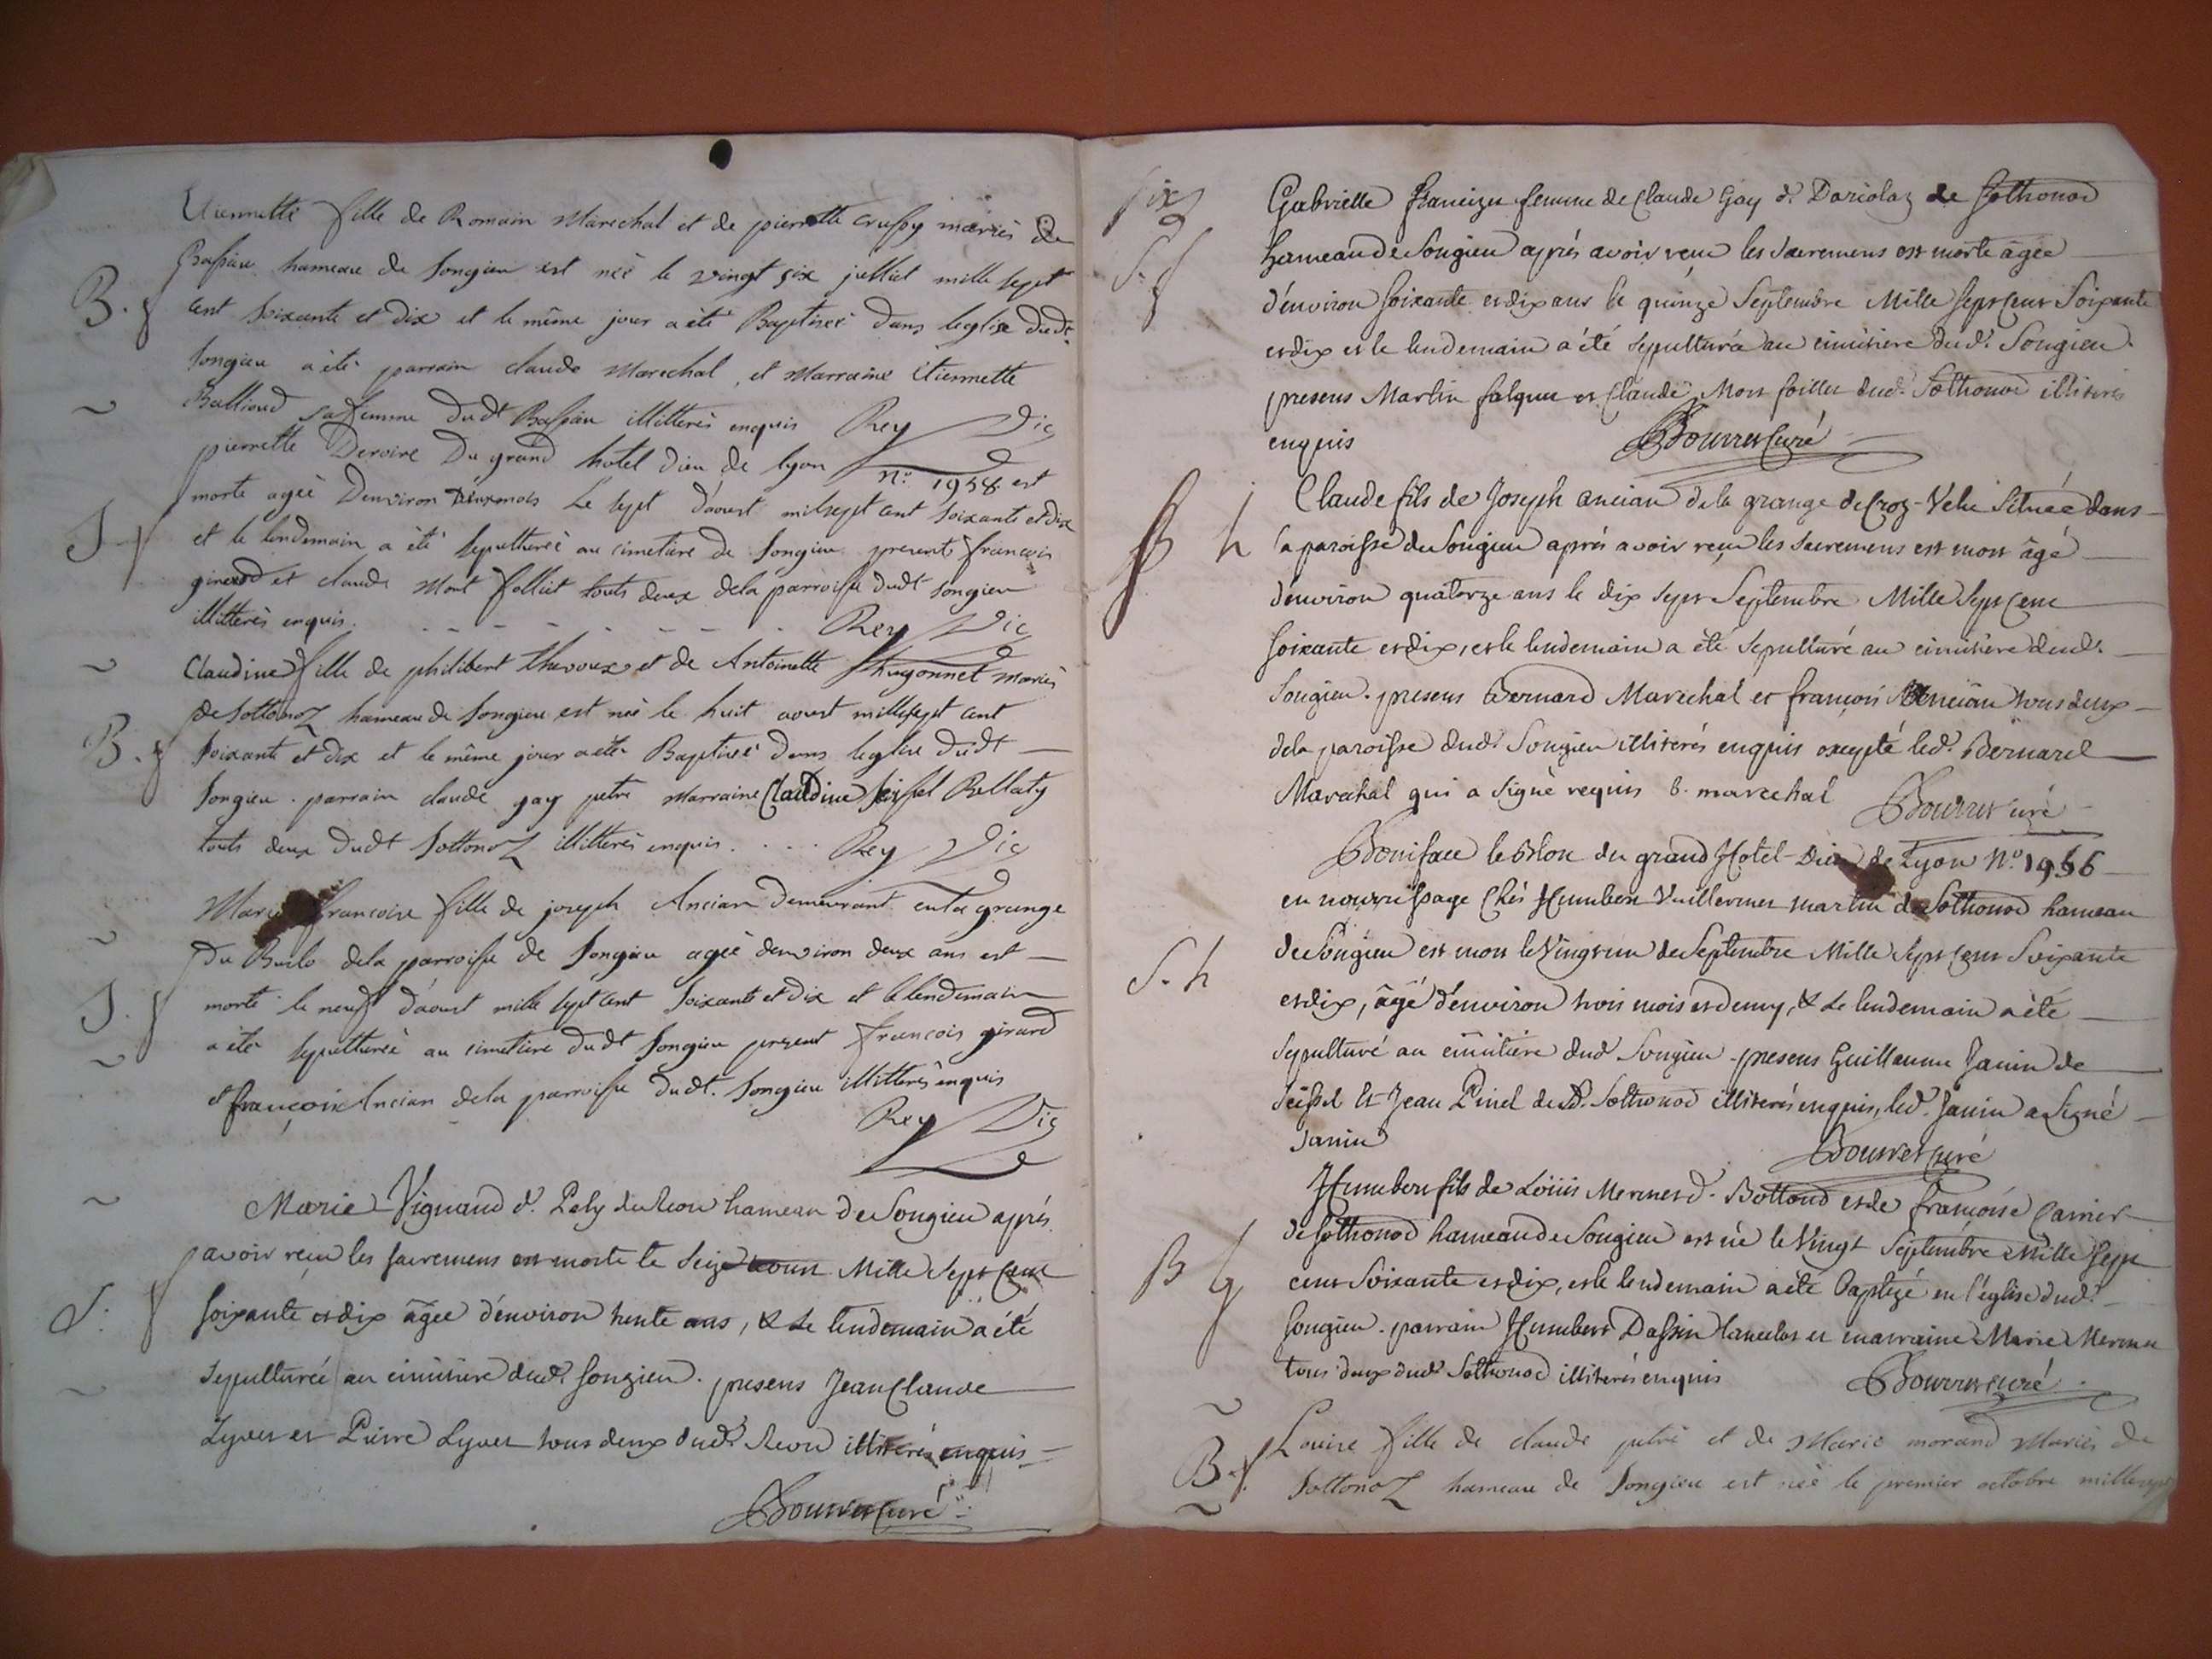 Etiennette fille de Romain Marechal et de pierrette mariés de
Bassieu hameau de Songieu est née le vingt six julliet mille sept
B. f
cent soixante et dix et le même jour a été Baptisée dans leglise dudt
Songieu a été parrain claude Marechal, et Marraine Etiennette
Balliaud sa femme dudt Bassieu illitterés enquis Rey Vic
pierrette Deroire Du grand hotel dieu de lyon n.º 1958 est
morte agée Denviron Le sept d'aoust mil sept cent soixante et dix
S f
et le lendemain a été sepulturée au cimetiere de Songieu present francois
girard et claude Mont falliet touts deux dela parroisse dudt songieu
illitterés enquis. Rey Vic
Claudine fille de philibert thevoux et de Antoinette hugonnet mariés
de SottonoZ hameau de Songieu est née le huit aoust mille sept cent
B. f
soixante et dix et le même jour a été Baptisée dans leglise dudt
Songieu. parrain claude gay petre Marraine Claudine Seissel Bellaty
touts deux dudt SottonoZ illitterés enquis. Rey Vic
Marie francoise fille de joseph Ancian demeurant en la grange
du dela parroisse de Songieu agée denviron deux ans est
S. f
morte le neuf d'aoust mille sept cent soixante et dix et le lendemain
a été sepulturée au cimetiere dudt Songieu present francois girard
et françois Ancian dela parroisse dudt. Songieu illitterés enquis
Rey Vic
Marie Vignand d. Pely du hameau de Songieu après
avoir reçu les sacremens est morte le seize aoust Mille Sept Cent
S. f
soixante et dix âgée d'environ trente ans, & le lendemain a été
sepulturée au cimitiere dud. Songieu. presens Jean Claude
Lyvet et Pierre Lyvet tous deux dud. illiterés enquis
Bouvet Curé
six
9
S. f
Gabrielle femme de Claude Gay d. Dariolaz de Sothonod
hameau de Songieu après avoir reçu les sacremens est morte âgée
d'environ soixante et dix ans le quinze Septembre Mille Sept Cent Soixante
et dix et le lendemain a été sepulturée au cimitiere dud. Songieu.
presens Martin falque et Claude Mont failler dud. Sothonod illiterés
enquis Bouvet Curé
Claude fils de Joseph ancian de la grange de Croz-Velu située dans
h
la paroisse de Songieu après avoir reçu les sacremens est mort âgé
d'environ quatorze ans le dix sept Septembre Mille Sept Cent
soixante et dix, et le lendemain a été sepulturé au cimitiere dud.
Songieu. presens Bernard Marechal et françois Ancian tous deux
dela paroisse dud. Songieu illiterés enquis excepté led. Bernard
Marechal qui a signé requis b. marechal Bouvet Curé
Boniface le du grand Hotel-Dieu de Lyon N.º 1956
en nourrissage chés Humbert Vuillermet martin de Sothonod hameau
S. h
de Songieu est mort le Vingt un de Septembre Mille Sept Cent Soixante
et dix, âgé d'environ trois mois et demy, & le lendemain a été
sepulturé au cimitiere dud Songieu. presens Guillaume Janin de
Seissel et Jean Pinel dud. Sothonod illiterés enquis, led. Janin a signé
Janin Bouvet Curé
Humbert fils de Loüis Mermet d. Bottond et de françoise Carrier
de Sothonod hameau de Songieu est né le Vingt Septembre Mille Sept
B
cent Soixante et dix, et le lendemain a été baptizé en l'église dud.
Songieu. parrain Humbert Dassin lancelot et marraine Marie Mermet
tous deux dud Sothonod illiterés enquis Bouvet Curé
Louise fille de claude petré et de Marie morand Mariés de
B. f.
SottonoZ hameau de Songieu est née le premier octobre mille sept